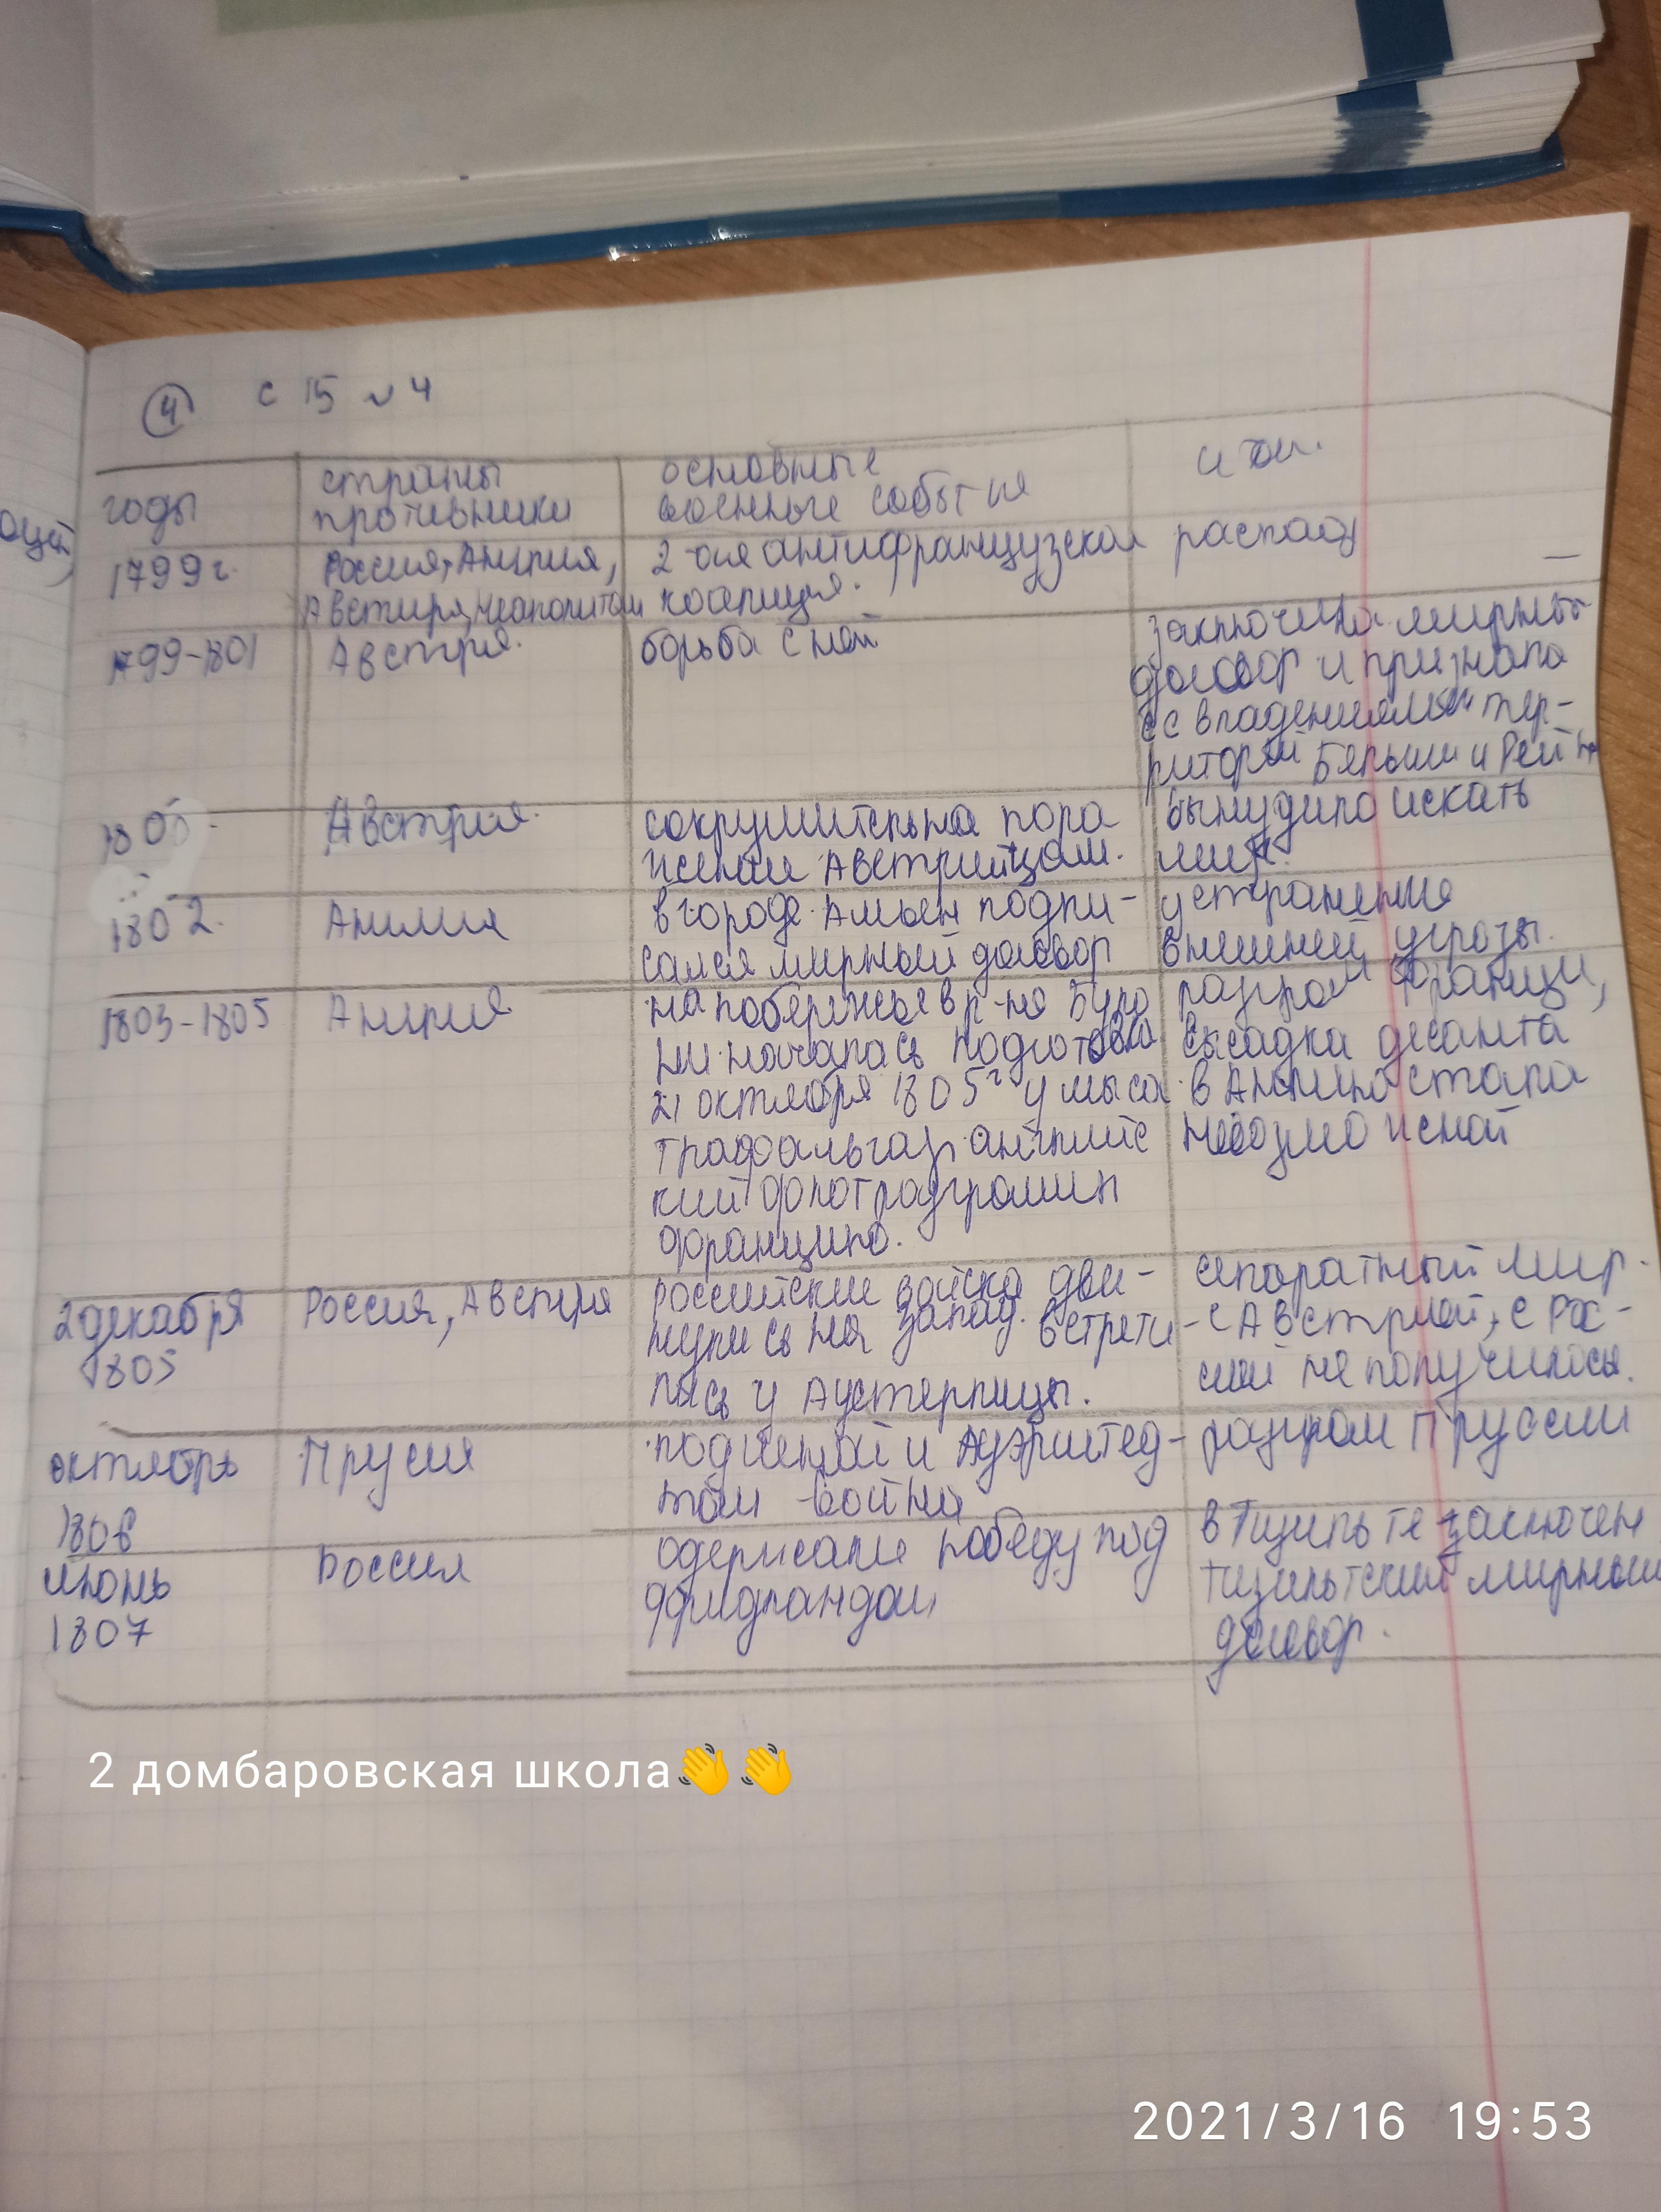 оций,
④ с 15 № 4
годы
страны
противники
основные
военные события
итог.
1799г.
Россия, Англия,
Австиря, неаполитан
2-ая антифранцузская
коалиция.
распад
1799-1801
Австрия.
борьба с ней
заключила мирный
договор и признала
её владениями тер-
риторий Бельгии и Рейна
180
Австрия.
сокрушительна пора
жении Австрийцам.
вынудило искать
мир.
1802.
Англия
в городе Амьен подпи-
сался мирный договор
устранение
внешней угрозы.
1803-1805
Англия
на побережье в р-не Було
ни началась подготовка
21 октября 1805г у мыса
трафальгар английс
кий флот разгромил
францию.
разгром франции,
высадка десанта
в Англию стала
невозможной
2 декабря
1805
Россия, Австрия
российские войска дви-
нулись на запад. встрети-
лись у Аустерлицы.
сепаратный мир
с Австрией, с Рос-
сией не получилось.
октябрь
1806
Прусия
под иеной и Ауэрштед-
том война
разгром Пруссии
июнь
1807
Россия
одержали победу под
фридландом
в Тизильте заключен
тизильтский мирный
договор.
2 домбаровская школа👋👋
2021/3/16 19:53